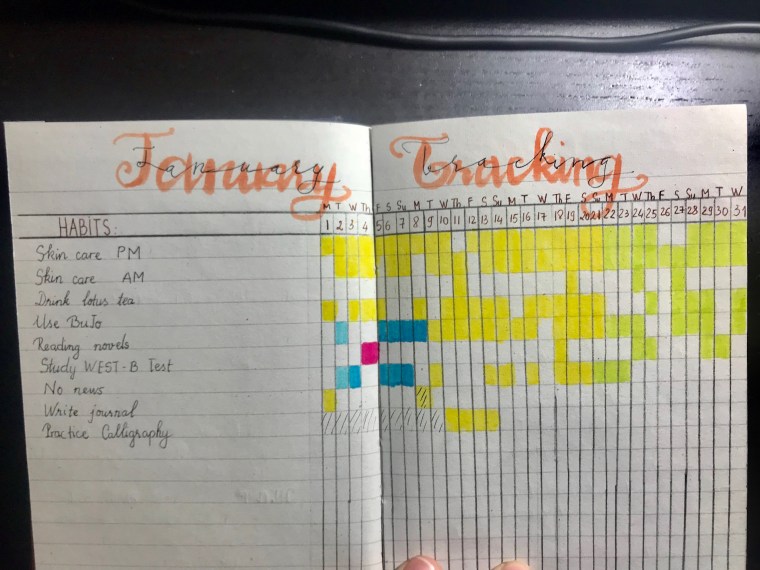 January Tracking
M T W Th F S Su M T W Th F S Su M T W Th F S Su M T W Th F S Su M T W
HABITS: 1 2 3 4 5 6 7 8 9 10 11 12 13 14 15 16 17 18 19 20 21 22 23 24 25 26 27 28 29 30 31
Skin care PM
Skin care AM
Drink lotus tea
Use BuJo
Reading novels
Study WEST-B Test
No news
Write journal
Practice Calligraphy